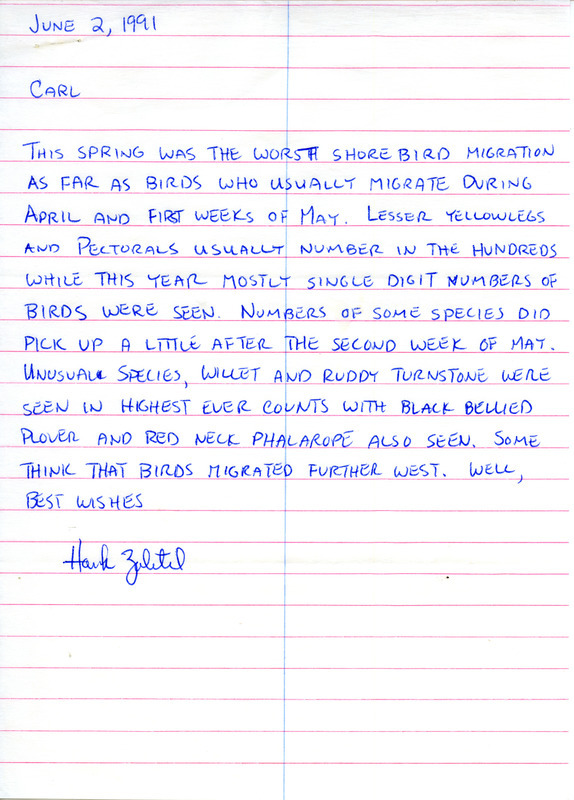 JUNE 2, 1991
CARL
THIS SPRING WAS THE WORST SHOREBIRD MIGRATION
AS FAR AS BIRDS WHO USUALLY MIGRATE DURING
APRIL AND FIRST WEEKS OF MAY. LESSER YELLOWLEGS
AND PECTORALS USUALLY NUMBER IN THE HUNDREDS
WHILE THIS YEAR MOSTLY SINGLE DIGIT NUMBERS OF
BIRDS WERE SEEN. NUMBERS OF SOME SPECIES DID
PICK UP A LITTLE AFTER THE SECOND WEEK OF MAY.
UNUSUAL SPECIES, WILLET AND RUDDY TURNSTONE WERE
SEEN IN HIGHEST EVER COUNTS WITH BLACK BELLIED
PLOVER AND RED NECK PHALAROPE ALSO SEEN. SOME
THINK THAT BIRDS MIGRATED FURTHER WEST. WELL,
BEST WISHES
Hank Zaletel